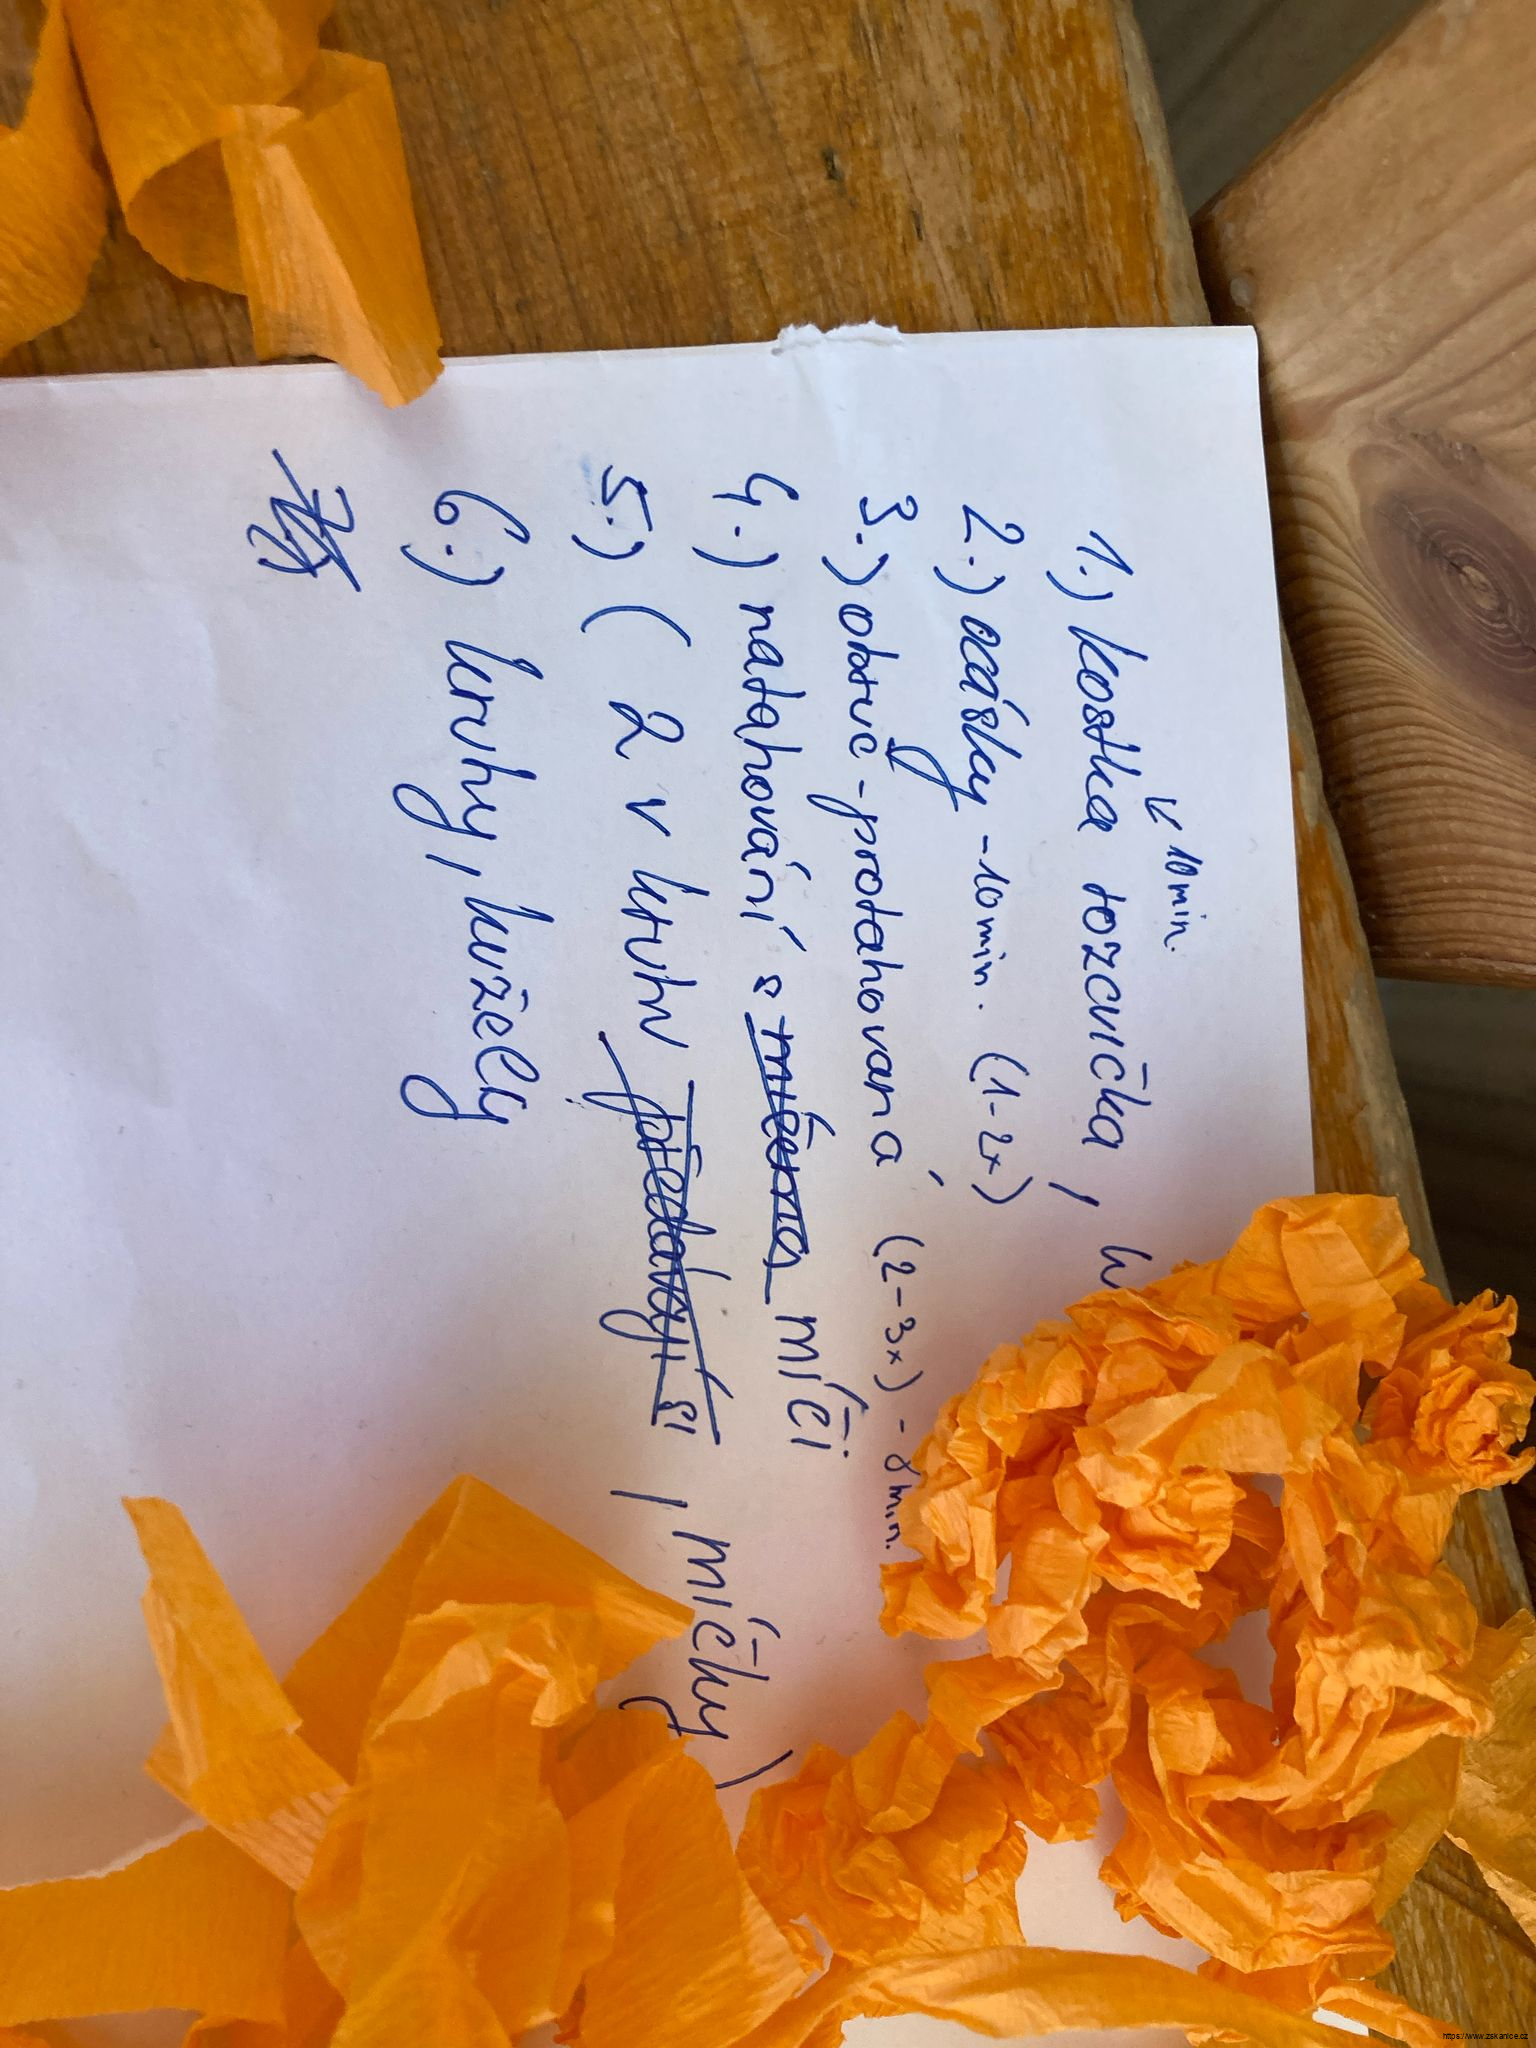 ↙ 10 min.
1.) kostka rozcvička,
2.) ocásky - 10 min. (1-2x)
3.) obruč - protahovaná (2-3x) - 8 min.
4.) natahování s míčema míči
5.) (2 v kruhu předávají si, míčky)
6.) kruhy, kužely
https://www.zskanice.cz